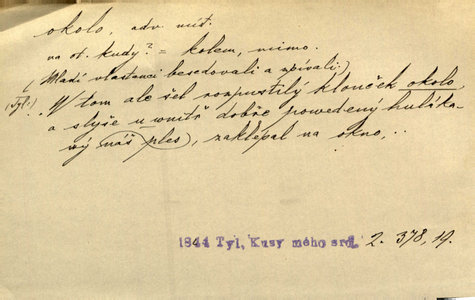 okolo, adv. míst.
na ot. kudy? = kolem, mimo.
(Mladí vlastenci besedovali a zpívali:)
(Tyl:) V tom ale šel rozpustilý klouček okolo,
a slyše u vnitř dobře povedený huláka-
vý (náš ples), zaklépal na okno,..
1844 Tyl, Kusy mého srd. 2. 378, 19.